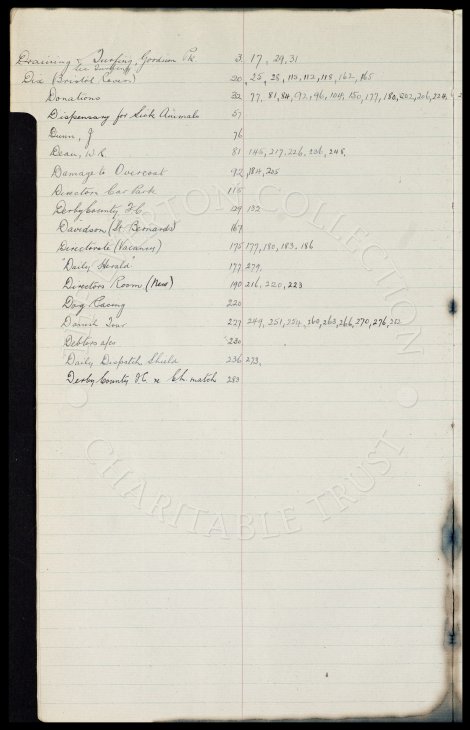 Draining & Turfing, Goodison Pk 3. 17, 29, 31
see Turfing
Dix (Bristol Rovers) 20 25, 28, 110, 112, 118, 162, 165
Donations 32 77, 81, 84, 92, 96, 104, 150, 177, 180, 202, 206, 224
Dispensary for Sick Animals 57
Dunn, J 76
Dean, W.R. 81 145, 217, 226, 236, 248,
Damage to Overcoat 92, 184, 205
Directors Car Park 115
Derby County F.C. 129 132
Davidson (St. Bernards) 167
Directorate (Vacancy) 175 177, 180, 183, 186
"Daily Herald" 177 279,
Directors Room (New) 190 216, 220, 223
Dog Racing 220
Danish Tour 227 249, 251, 254, 260, 263, 266, 270, 276, 282
Debtors a/cs 230
"Daily Dispatch" Shield 236 273,
Derby County F.C. re Ch. match 283
EVERTON COLLECTION
CHARITABLE TRUST